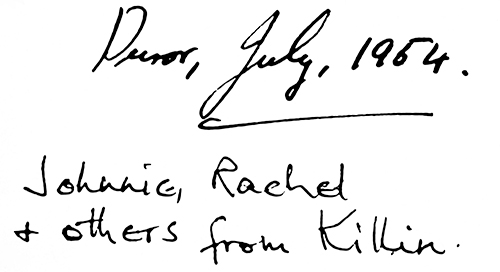 Duror, July, 1954.
Johnnie, Rachel
+ others from Killin.